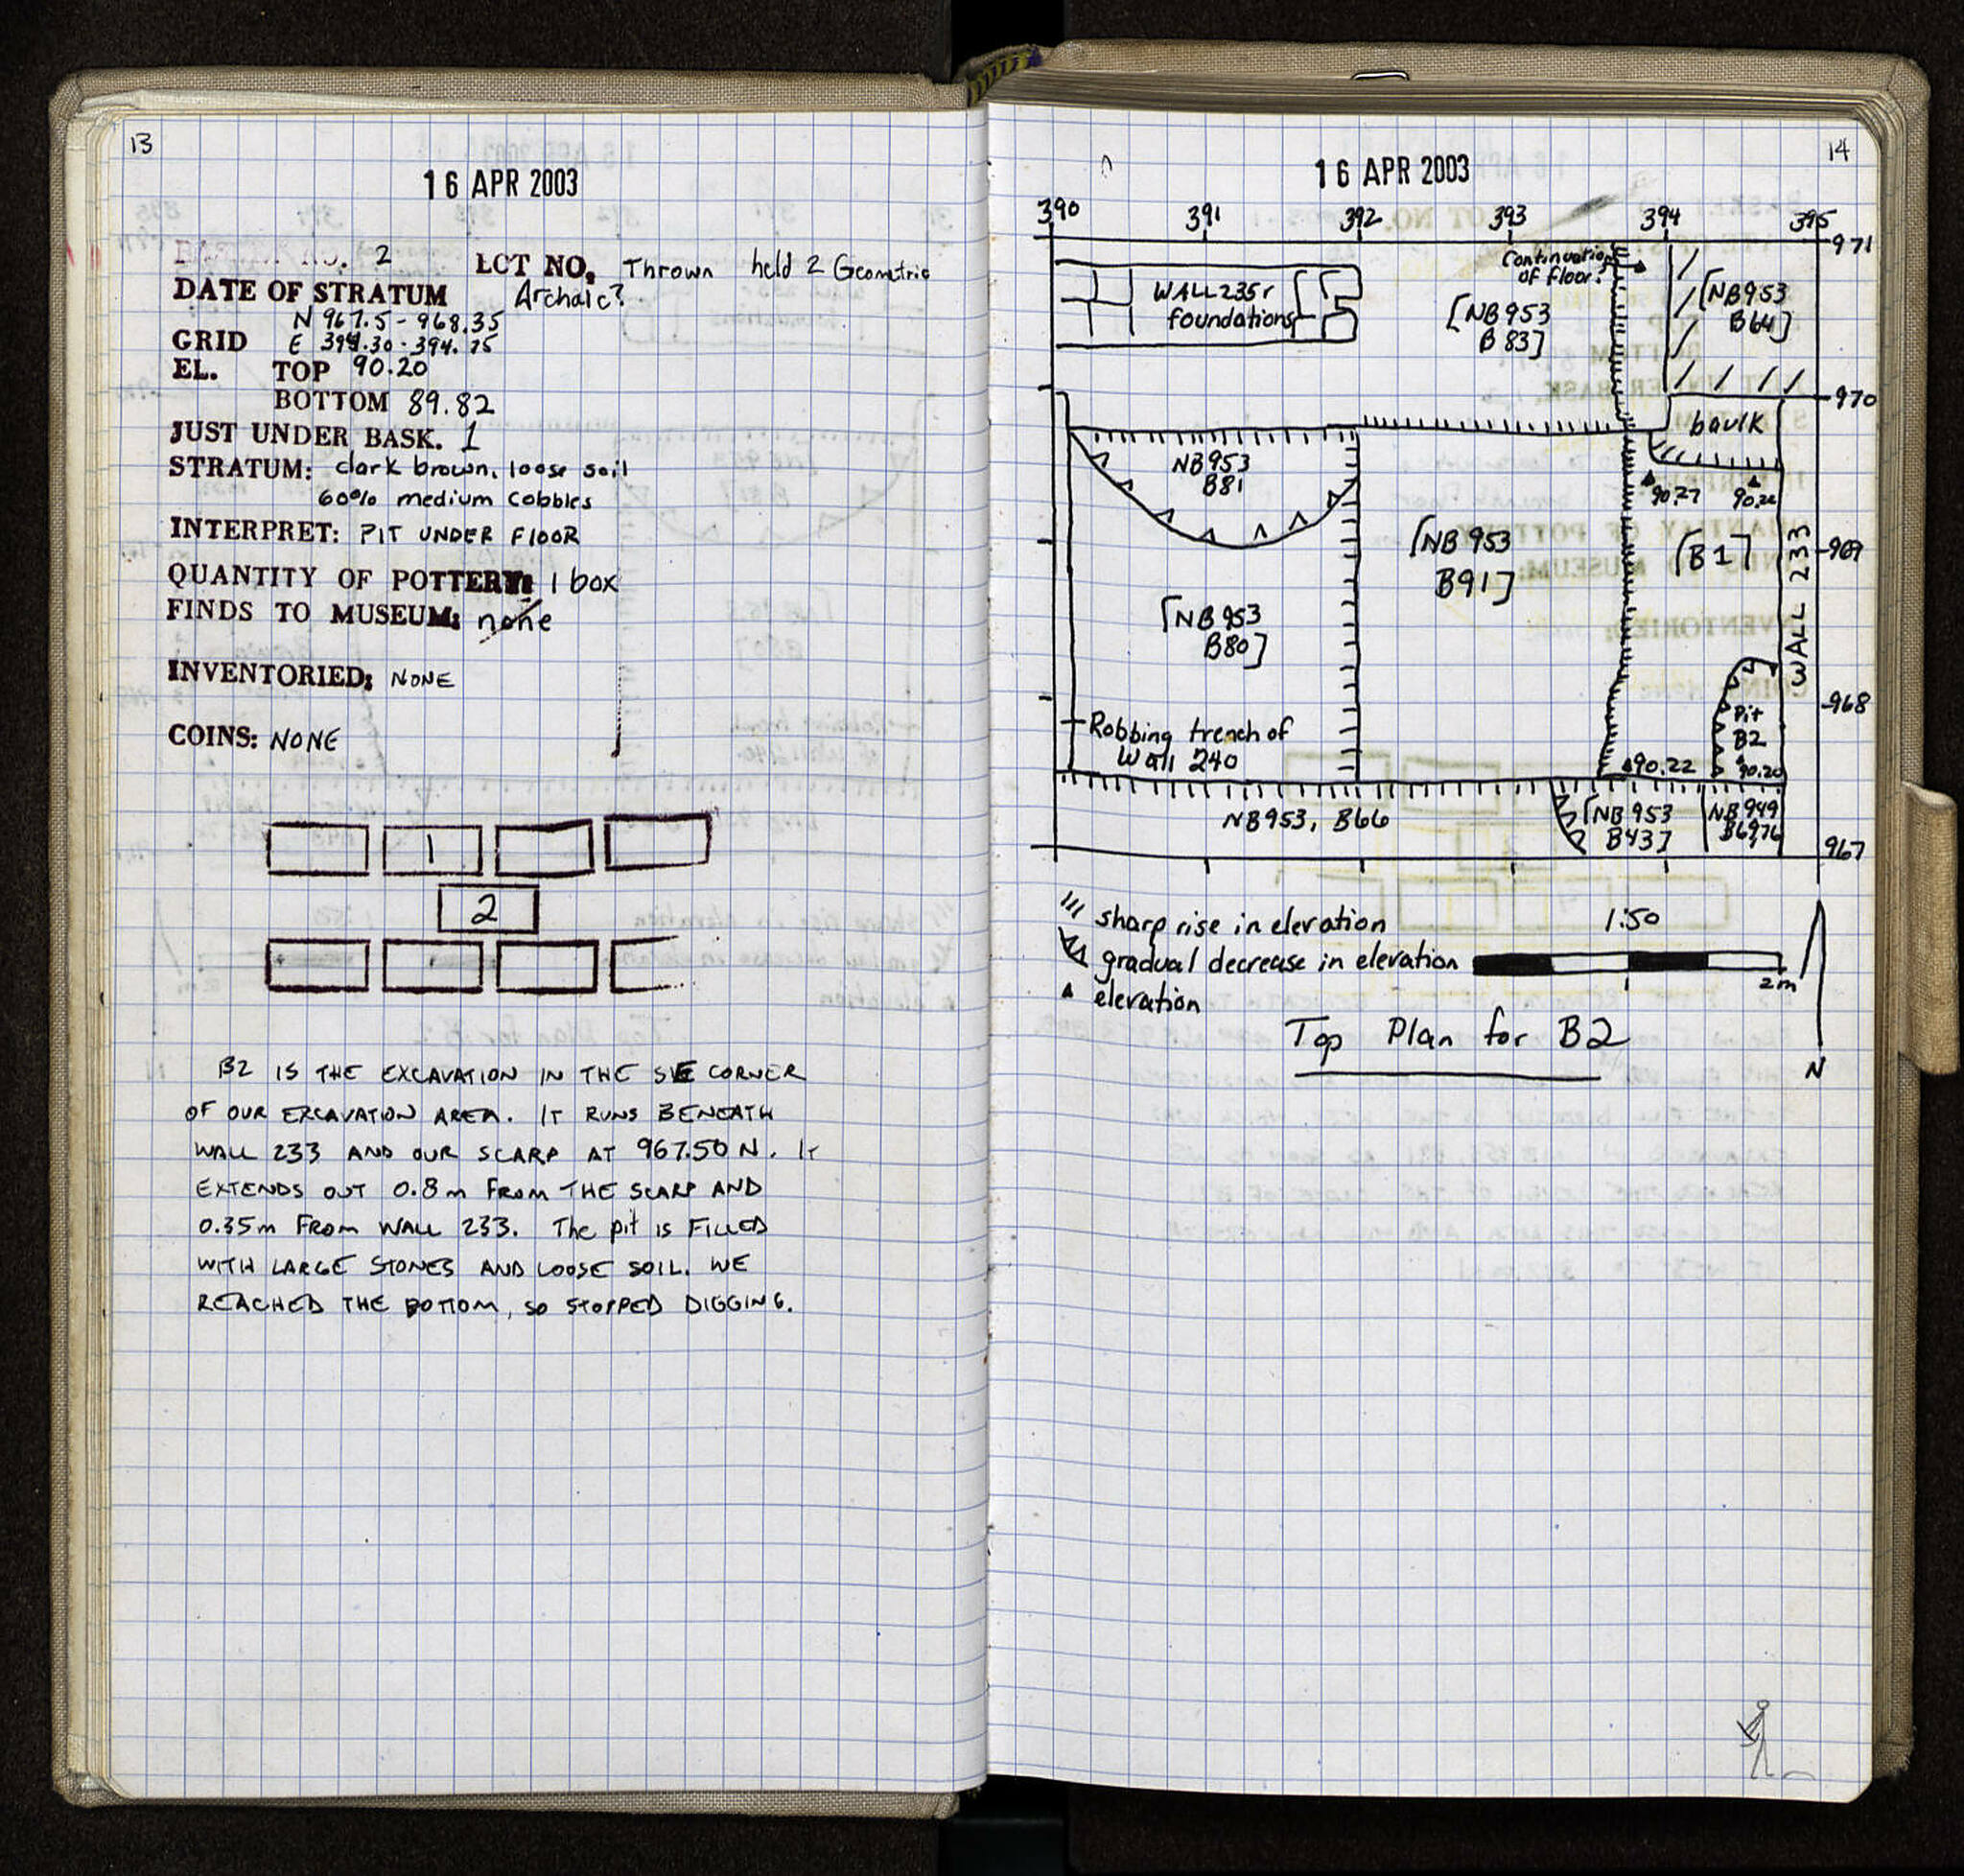 13
16 APR 2003
NO. 2 LOT NO. Thrown held 2 Geometric
DATE OF STRATUM Archaic?
N 967.5 - 968.35
GRID E 394.30 - 394.75
EL. TOP 90.20
BOTTOM 89.82
JUST UNDER BASK. 1
STRATUM: dark brown, loose soil
60% medium cobbles
INTERPRET: PIT UNDER FLOOR
QUANTITY OF POTTERY: 1 box
FINDS TO MUSEUM: none
INVENTORIED: NONE
COINS: NONE
1
2
B2 IS THE EXCAVATION IN THE SE CORNER
OF OUR EXCAVATION AREA. IT RUNS BENEATH
WALL 233 AND OUR SCARP AT 967.50 N. IT
EXTENDS OUT 0.8m FROM THE SCARP AND
0.35m FROM WALL 233. The pit is FILLED
WITH LARGE STONES AND LOOSE SOIL. WE
REACHED THE BOTTOM, SO STOPPED DIGGING.
14
16 APR 2003
390 391 392 393 394 395
971
Continuation
of floor?
WALL 235
foundations
[NB953
B83]
[NB953
B64]
970
baulk
NB953
B81
90.27 90.22
[NB 953
B91]
[B1]
969
WALL 233
[NB953
B80]
968
Pit
B2
90.20
Robbing trench of
Wall 240
90.22
NB953, B66
[NB953
B43]
NB949
B6976
967
sharp rise in elevation
1:50
gradual decrease in elevation
2m
elevation
Top Plan for B2
N